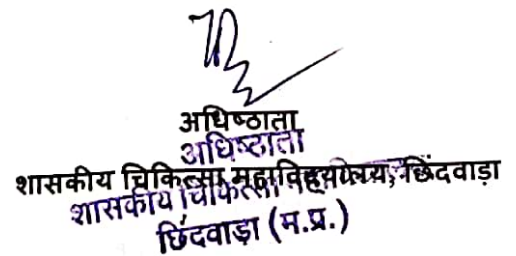 अधिष्ठाता
अधिष्ठाता
शासकीय चिकित्सा महाविद्यालय, छिंदवाड़ा
शासकीय चिकित्सा
छिंदवाड़ा (म.प्र.)